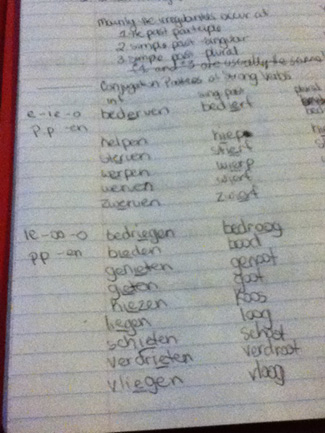 Mainly the irregularities occur at
1. the past participle
2. simple past singular
3. simple past plural
(1 and 3 are usually the same
Conjugation Patterns of Strong Verbs
inf sing past plural
e-ie-o bederven bedierf
p.p -en
helpen hielp
sterven stierf
werpen wierp
werven wierf
zwerven zwierf
ie-oo-o bedriegen bedroog
pp -en bieden bood
genieten genoot
gieten goot
kiezen koos
liegen loog
schieten schoot
verdrieten verdroot
vliegen vloog